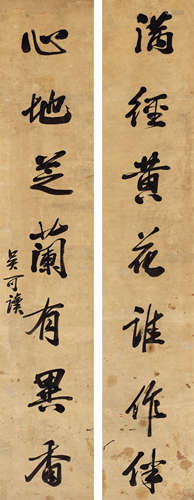 滿經黃花誰作伴
心地芝蘭有異香
吳可讀